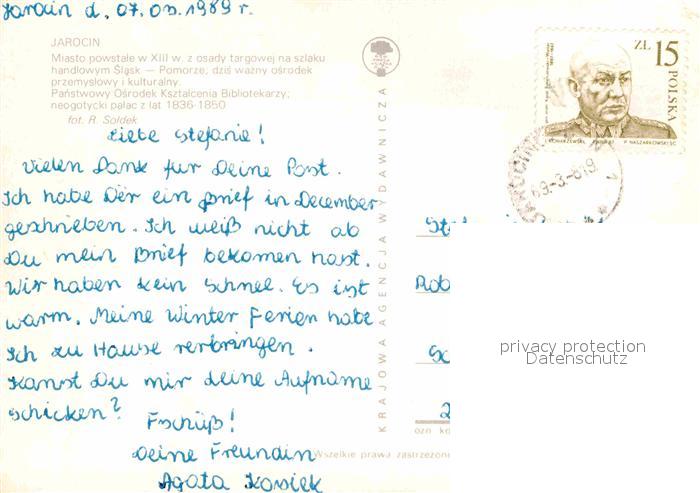 Jarocin d. 07.03.1989 r.
JAROCIN
Miasto powstałe w XIII w. z osady targowej na szlaku
handlowym Śląsk — Pomorze, dziś ważny ośrodek
przemysłowy i kulturalny.
Państwowy Ośrodek Kształcenia Bibliotekarzy;
neogotycki pałac z lat 1836-1850
fot. R. Sołdek
ZŁ 15
POLSKA
Liebe Stefanie!
Vielen Dank für Deine Post.
Ich habe Der ein Brief in December
geschrieben. Ich weiß nicht ab
Du mein Brief bekomen hast.
Wir haben kein Schnel. Es ist
warm. Meine Winter Ferien habe
Ich zu Hause verbringen.
Kanst Du mir deine Aufname
schicken?
Tschüß!
Deine Freundin
Agata Kosiek
KRAJOWA AGENCJA WYDAWNICZA
Rob
privacy protection
Datenschutz
Wszelkie prawa zastrzeżone